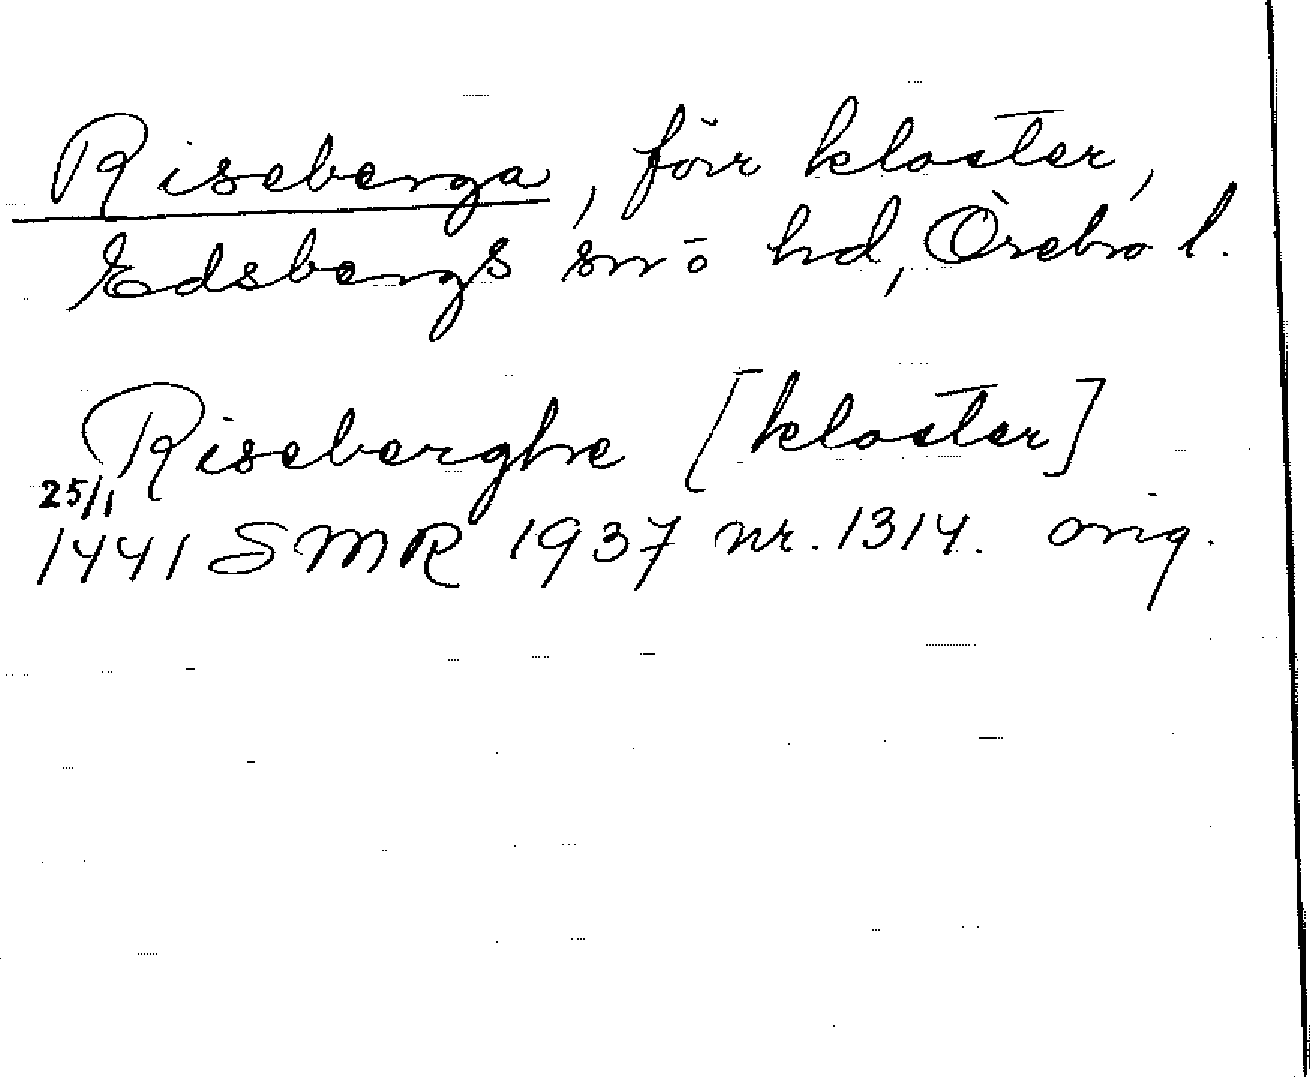 Riseberga, förr kloster,
Edsbergs sn o hd, Örebro l.
Riseberghe [kloster]
25/1
1441 SMR 1937 nr. 1314. orig.